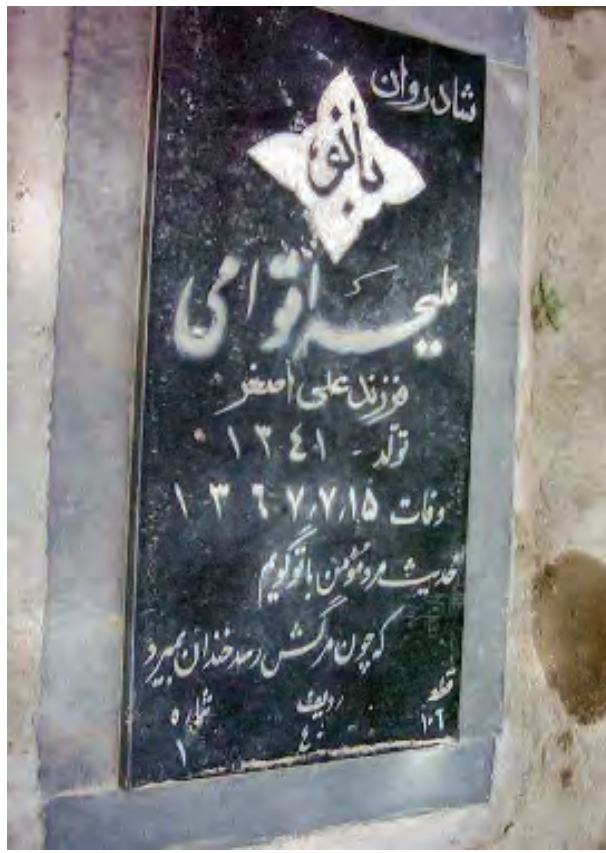 شادروان
بانو
ملیحه اقوامی
فرزند علی اصغر
تولد - ۱۳۴۱
وفات ۱۳۶۷٫۷٫۱۵
حدیث مرد مؤمن با تو گویم
که چون مرگش رسد خندان بمیرد
قطعه ردیف شماره
۱۰۶ ۴ ۱